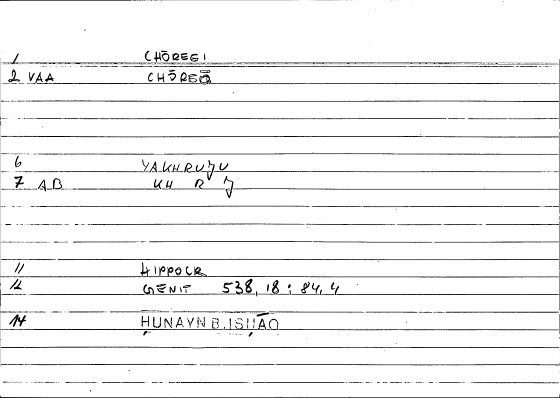 1 CHŌREGI
2 VAA CHŌREŌ
6 YAKHRUǦU
7 AB KH R Ǧ
11 HIPPOCR
12 GENIT 538,18 : 84,4
14 ḤUNAYN B. ISḤĀQ